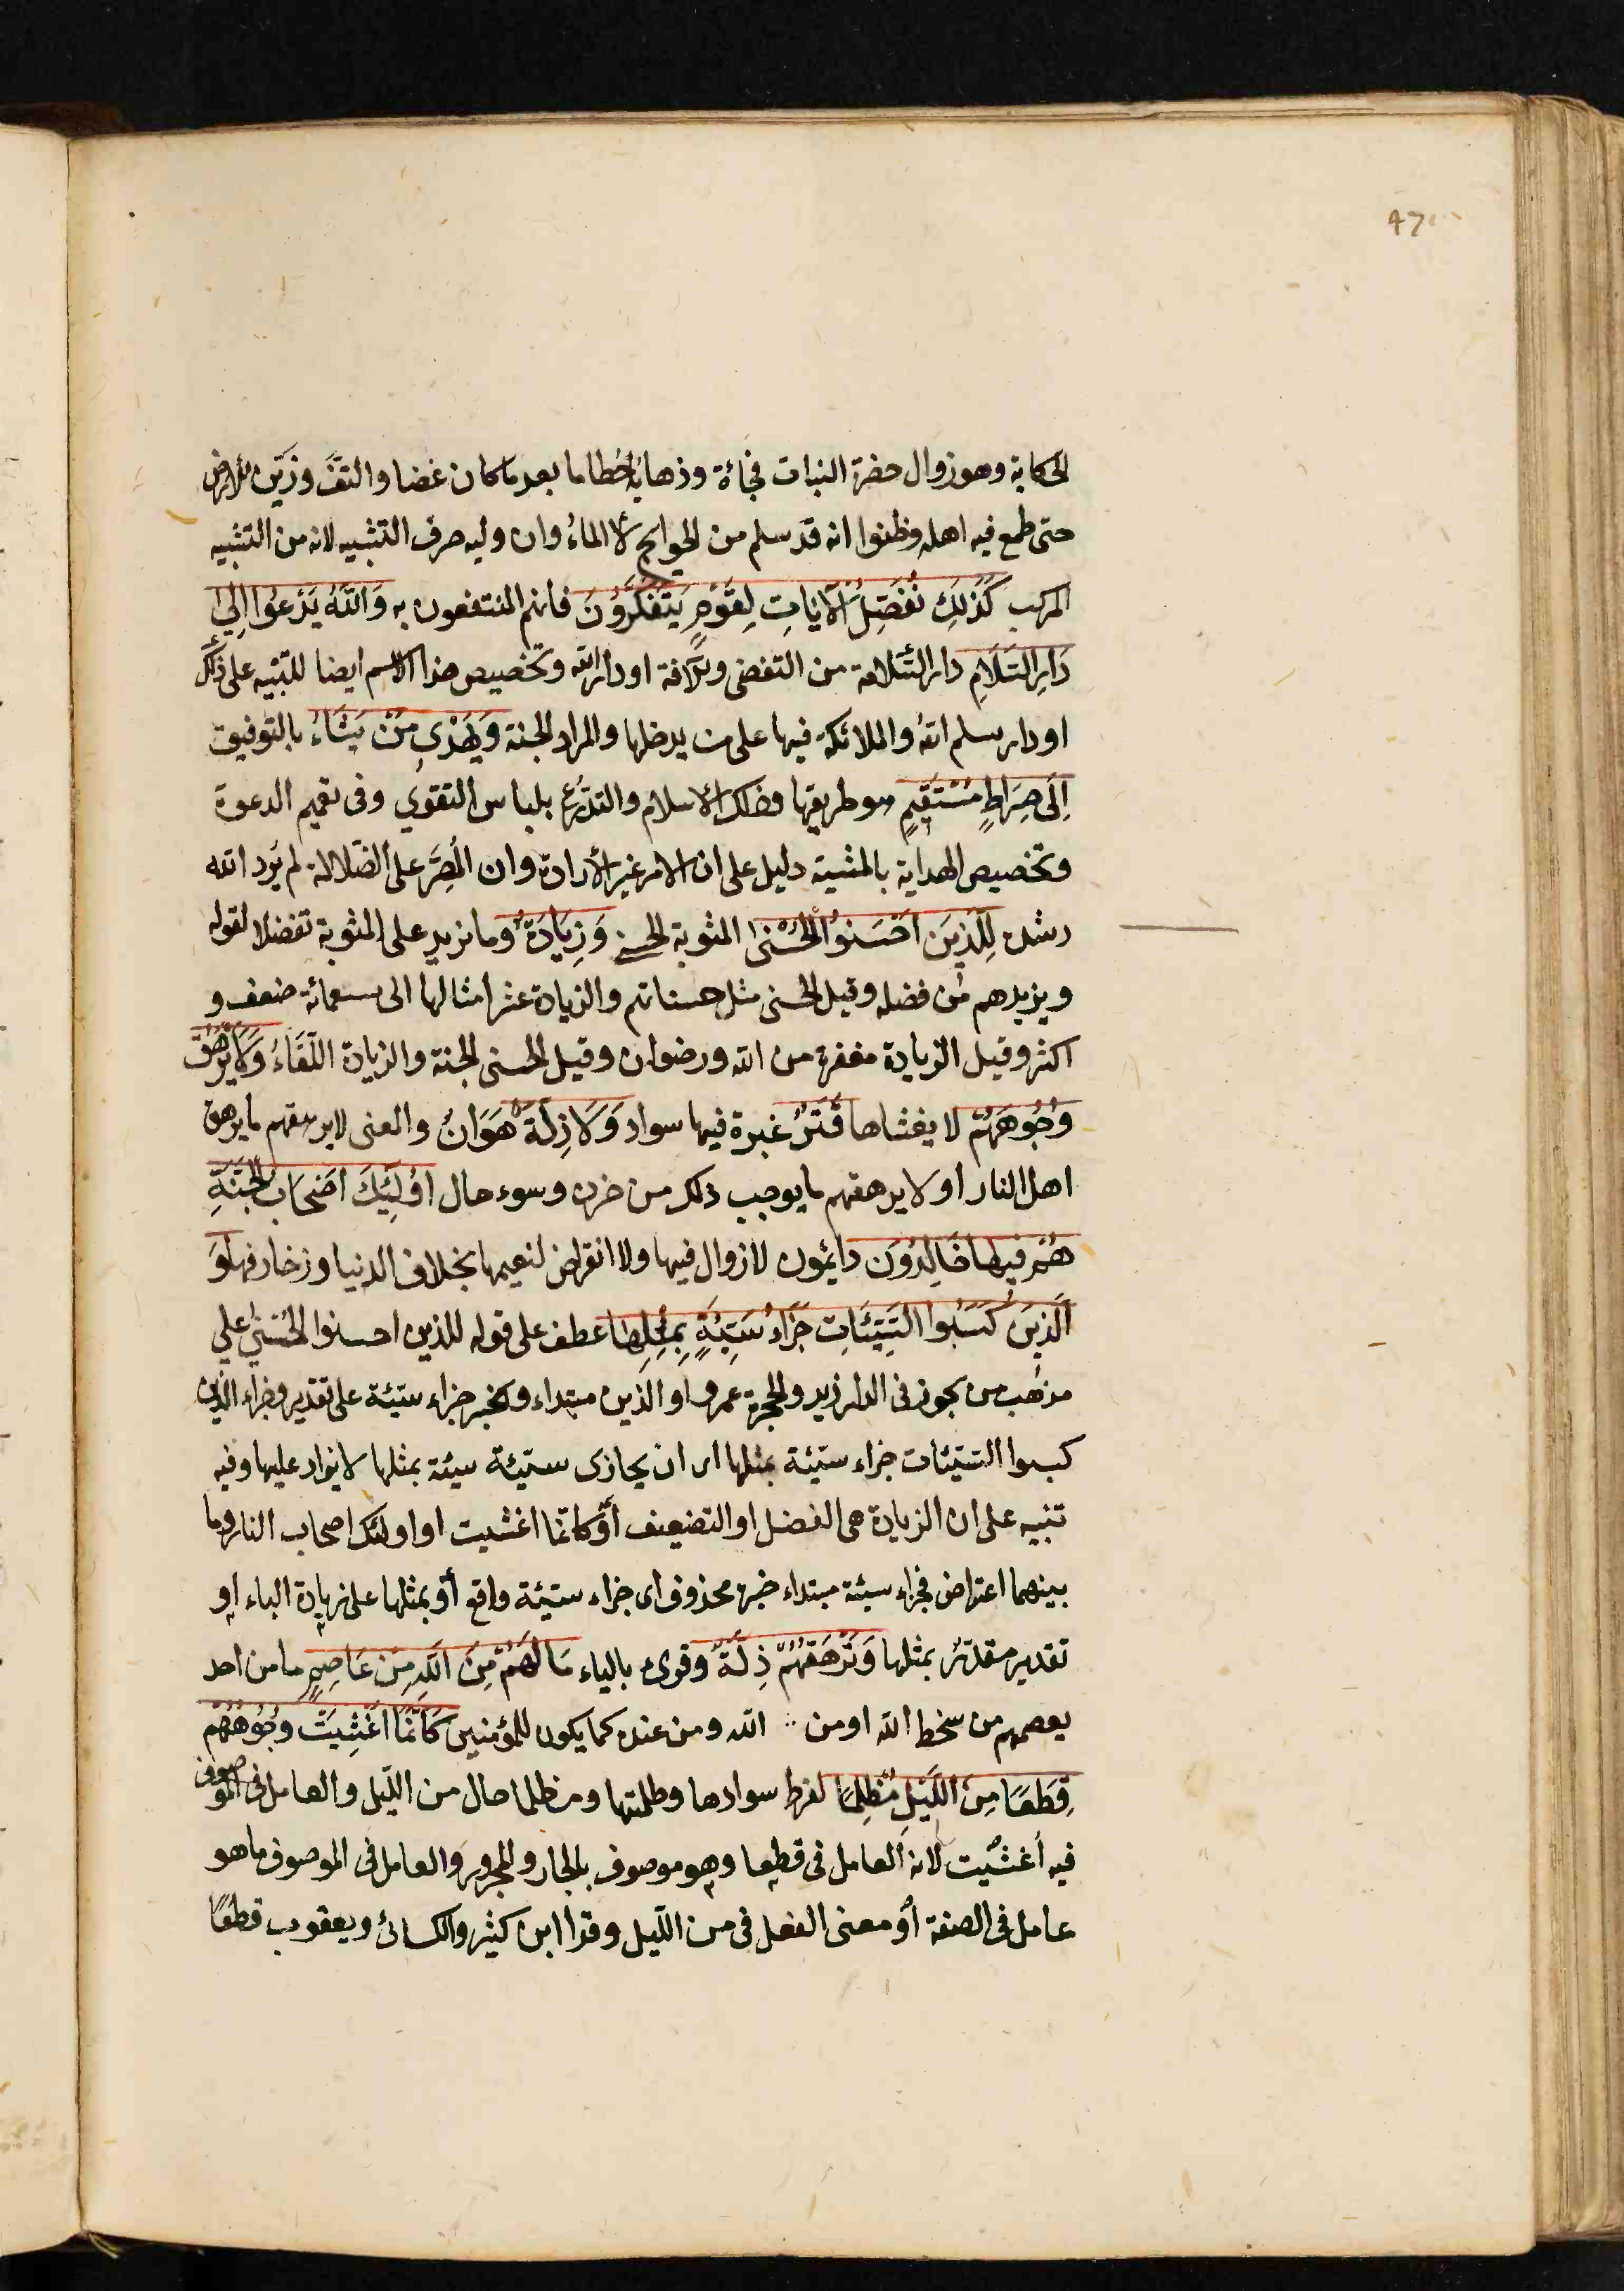 47
الحكاية وهو زوال حضرة النبات فجأة وذهابه حطاما بعد ما كان غضا والتفّ وزيّن الارض
حتى طمع فيه اهله وظنوا انه قد سلم من الجوائح لا الماءُ وان وليه حرف التشبيه لانه من التشبيه
المركب كَذٰلِكَ نُفَصِّلُ الْآيَاتِ لِقَوْمٍ يَتَفَكَّرُونَ فانهم المنتفعون به وَاللّٰهُ يَدْعُوا اِلٰى
دَارِ السَّلَامِ دار السّلامة من التقضى والآفة او دار الله وتخصيص هذا الاسم ايضا للتنبيه على ذلك
او دار سلم الله والملائكة فيها على من يدخلها والمراد الجنة وَيَهْدِى مَنْ يَشَاءُ بالتوفيق
اِلَى صِرَاطٍ مُسْتَقِيمٍ هو طريقها وذلك الاسلام والتدرّع بلباس التقوى وفى تعميم الدعوة
وتخصيص الهداية بالمشية دليل على ان الامر غير الارادة وان المُصِرَّ على الضّلالة لم يَرِد الله
رشده لِلَّذِينَ اَحْسَنُوا الْحُسْنٰى المثوبة الحسنى وَزِيَادَةٌ وما نزيد على المثوبة تفضلا لقوله
ويزيدهم من فضله وقيل الحسنى مثل حسناتهم والزيادة عشر امثالها الى سبعمائة ضعف و
اكثر وقيل الزيادة مغفرة من الله ورضوان وقيل الحسنى الجنة والزيادة اللّقَاءُ وَلَا يَرْهَقُ
وُجُوهَهُمْ لا يغشاها قَتَرٌ غبرة فيها سواد وَلَا ذِلَّةٌ هَوَانٌ والمعنى لا يرهقهم ما يرهق
اهل النار او لا يرهقهم ما يوجب ذلك من حزن وسوء حال اُولٰئِكَ اَصْحَابُ الْجَنَّةِ
هُمْ فِيهَا خَالِدُونَ دائمون لا زوال فيها ولا انقراض لنعيمها بخلاف الدنيا وزخارفها وَ
الَّذِينَ كَسَبُوا السَّيِّئَاتِ جَزَاءُ سَيِّئَةٍ بِمِثْلِهَا عطف على قوله للذين احسنوا الحُسْنٰى على
مذهب من يجوز فى الدار زيد والحجرة عمرو او الذين مبتداء والخبر جزاء سيّئة على تقدير وجزاء الذين
كسبوا السّيّئات جزاء سيّئة بمثلها اى ان يجازى سيّئة سيئة بمثلها لا يزاد عليها وفيه
تنبيه على ان الزيادة هى الفضل او التضعيف اَوْ كانّما اغشيت او اولئك اصحاب النار وما
بينهما اعتراض فجزاء سيئة مبتداء خبره محذوف اى جزاء سيّئة واقع أو بمثلها على زيادة الباء او
تقدير مقدّرٌ بمثلها وَتَرْهَقُهُمْ ذِلَّةٌ وقرئ بالياء مَا لَهُمْ مِنَ اللّٰهِ مِنْ عَاصِمٍ ما من احد
يعصمهم من سخط الله او من ∴ الله ومن عنده كما يكون للمؤمنين كَاَنَّمَا اُغْشِيَتْ وُجُوهُهُمْ
قِطَعًا مِنَ اللَّيْلِ مُظْلِمًا لفرط سوادها وظلمتها ومظلما حال من اللّيل والعامل فى الموصوف
فيه أُغشيت لانه العامل فى قطعا وهو موصوف بالجار والمجرور والعامل فى الموصوف ما هو
عامل فى الصفة أو معنى الفعل فى من اللّيل وقرأ ابن كثير والكسائى ويعقوب قطعًا